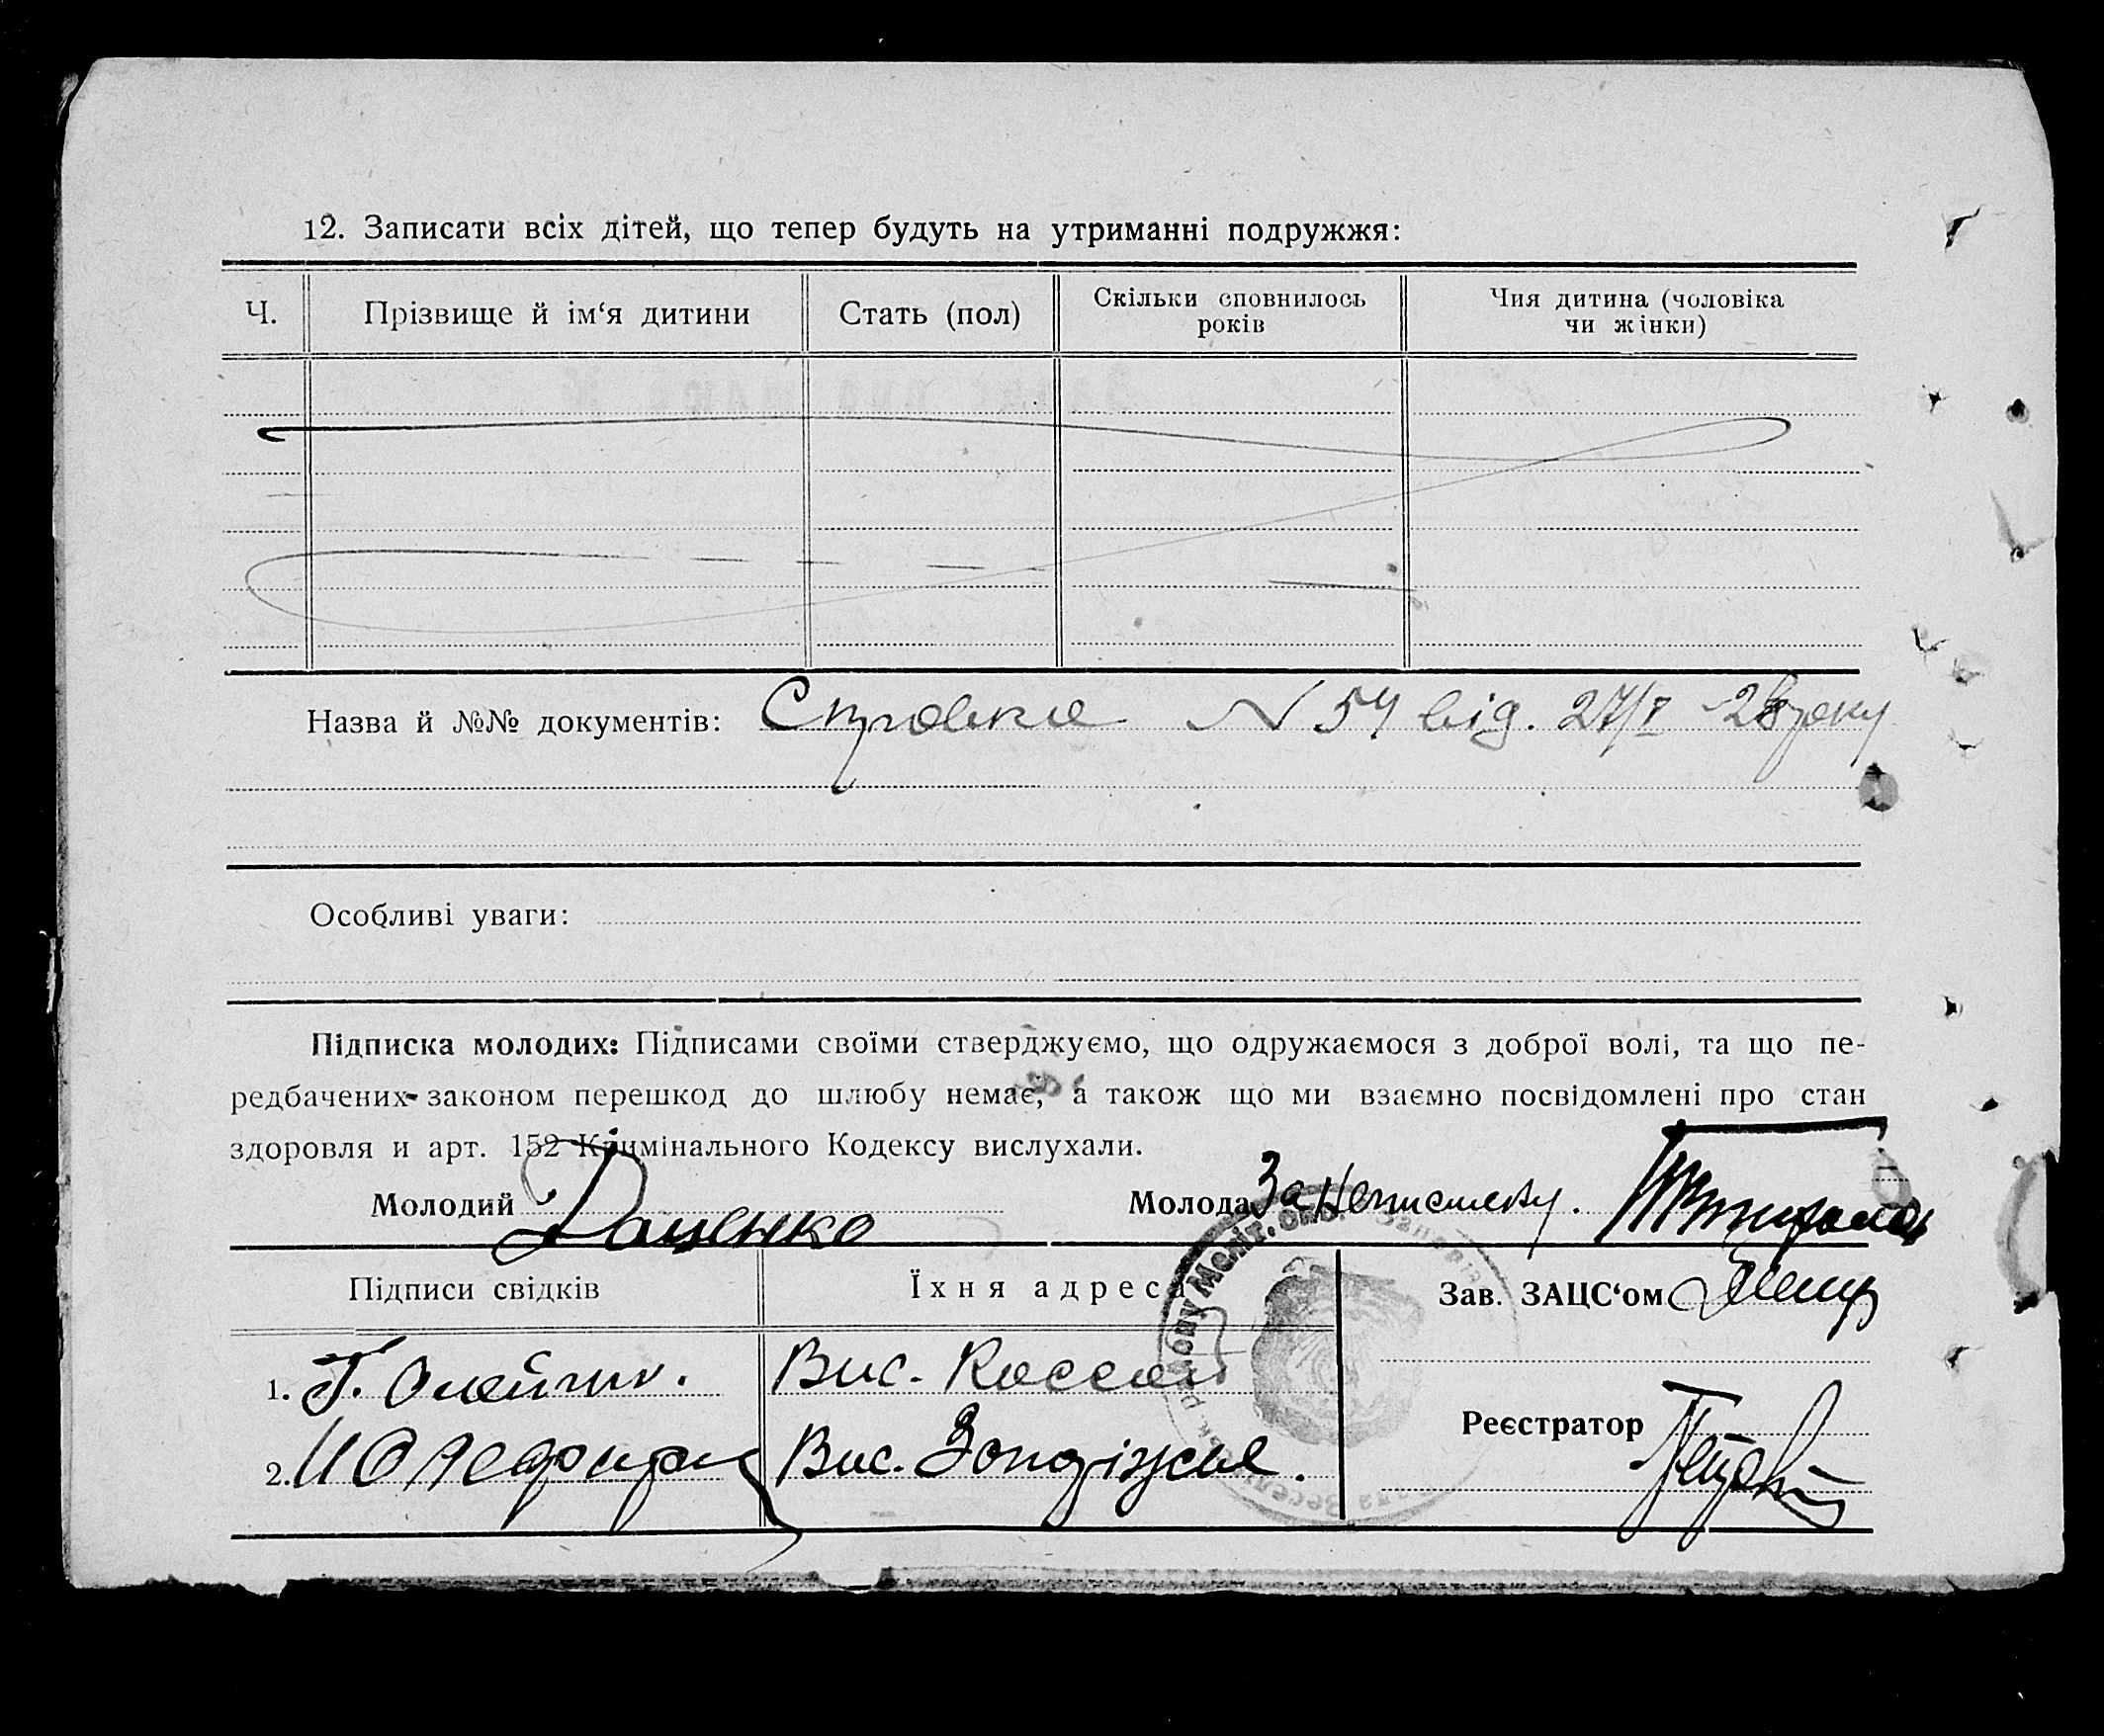 12. Записати всіх дітей, що тепер будуть на утриманні подружжя:
Ч. Прізвище й ім‘я дитини Стать (пол) Скільки сповнилось років Чия дитина (чоловіка чи жінки)
Назва й №№ документів: Справка N 54 від. 27/I -28 року
Особливі уваги:
Підписка молодих: Підписами своїми стверджуємо, що одружаємося з доброї волі, та що пе-
редбачених законом перешкод до шлюбу немає, а також що ми взаємно посвідомлені про стан
здоровля и арт. 152 Кримінального Кодексу вислухали.
Молодий Даценко Молода За
Підписи свідків Їхня адреса Зав. ЗАЦС‘ом
1. Г. Олейник. Вис.
Реєстратор
2. Вис.
району Меліт. окр.